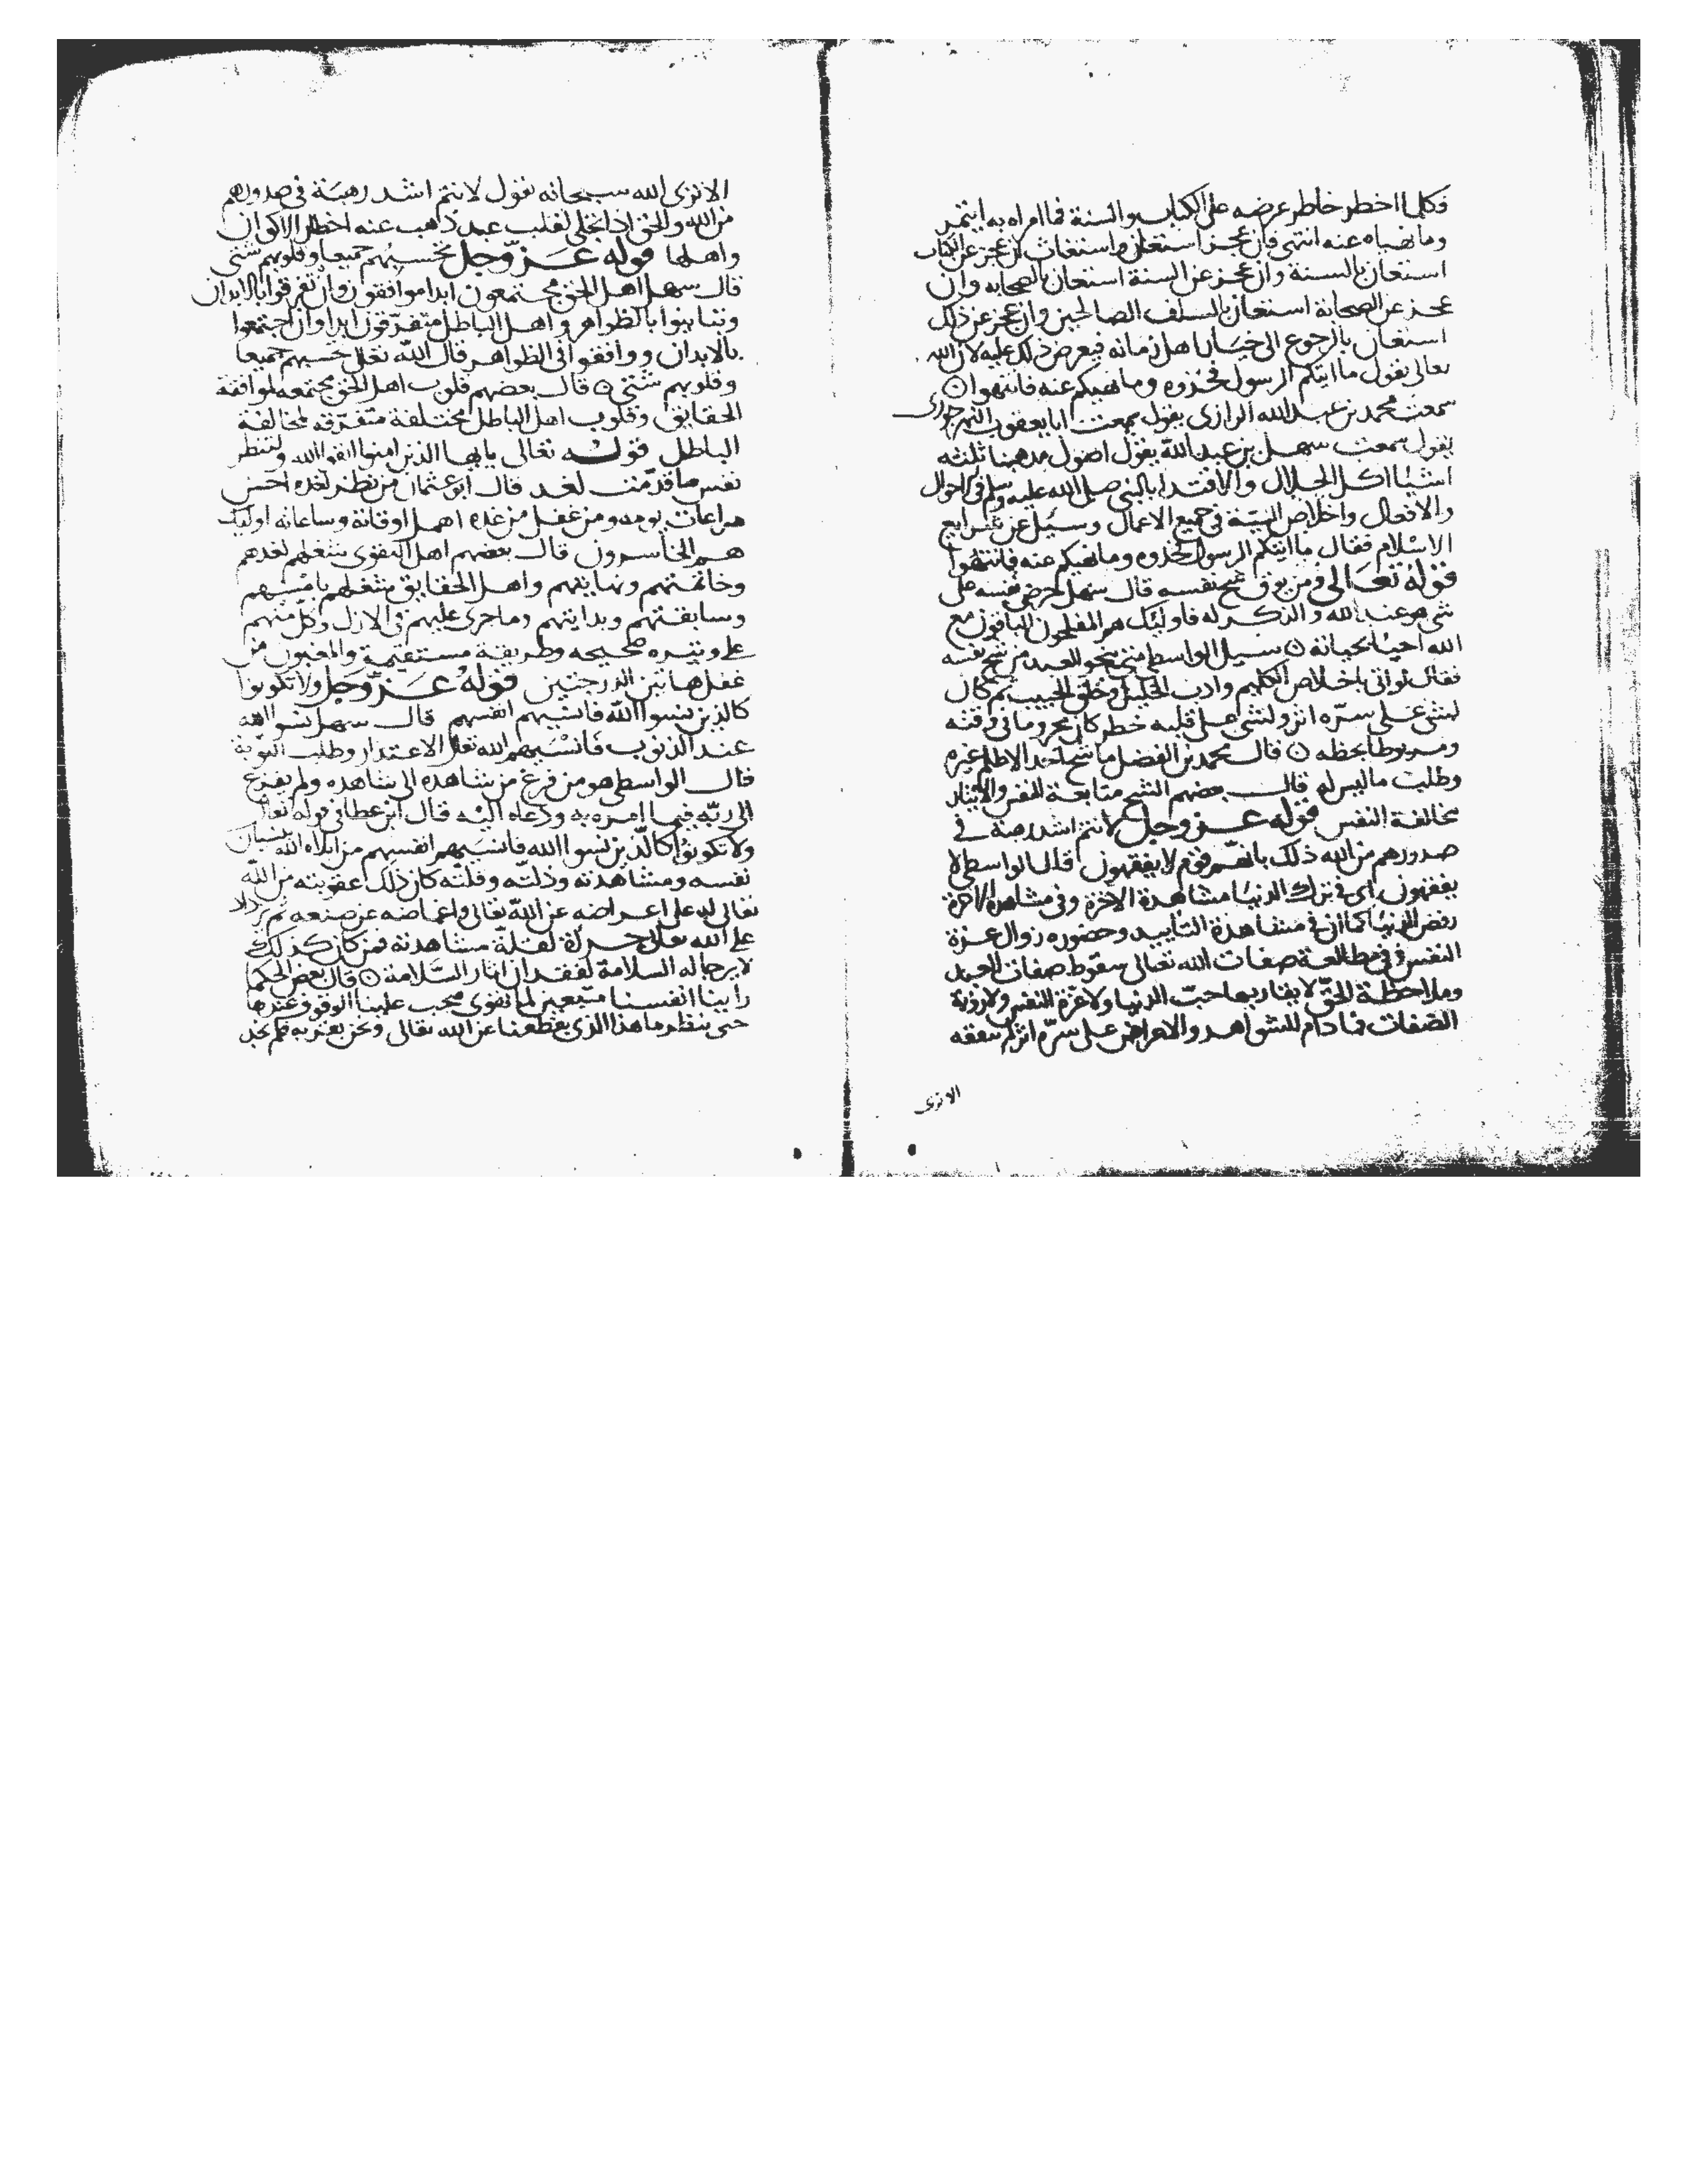 فكلما اخطر خاطر عرضه على الكتاب والسنة فما امراه به ايتمر
وما نهياه عنه انتهى فان عجز استعان واستغاث ان عجز عن الكتاب
استعان بالسنة وان عجز عن السنة استعان بالصحابه وان
عجز عن الصحابة استعان بالسلف الصالحين وان عجز عن ذلك
استعان بالرجوع الى خيار اهل زمانه فيعرض ذلك عليه لان الله
تعالى يقول ما اتيكم الرسول فخذوه وما نهيكم عنه فانتهوا ۞
سمعت محمد بن عبد الله الرازى يقول سمعت ابا يعقوب النهرجورى
يقول سمعت سهل بن عبد الله يقول اصول مذهبنا ثلثه
اشيا اكل الحلال والاقتدا بالنبى صلى الله عليه وسلم فى الاحوال
والافعال واخلاص النية فى جميع الاعمال وسئل عن شرايع
الاسلام فقال ما اتيكم الرسول فخذوه وما نهيكم عنه فانتهوا
قوله تعالى ومن يوق شح نفسه قال سهل حرص نفسه على
شى هو عند الله والذكر له فاوليك هم المفلحون الباقون مع
الله احيا بحياته ۞ سيل الواسطى متى ينجو العبد من شح نفسه
فقال لو اتى باخلاص الكليم وادب الخليل وخلق الحبيب ثم كان
لشى على سره اثر ولشى على قلبه خطر كان محروما فى وقته
ومربوطا بحظه ۞ قال محمد بن الفضل ما شح احد الا ظلم غيره
وطلب ما ليس له قال بعضهم الشح متابعة النفس والايثار
مخالفة النفس قوله عز وجل لانتم اشد رهبة فى
صدورهم من الله ذلك بانهم قوم لا يفقهون قال الواسطى لا
يفقهون اى فى ترك الدنيا مشاهدة الاخرة وفى مشاهدة الاخرة
رفض الدنيا كما ان فى مشاهدة التاييد وحضوره زوال عزة
النفس وفى مطالعة صفات الله تعالى سقوط صفات العبد
وملاحظة الحق لا يقاربها حب الدنيا ولا عزة النفس ولا رؤية
الصفات فما دام للشواهد والاعراض على سره اثر لم يفقه
الا ترى
الا ترى الله سبحانه يقول لانتم اشد رهبة فى صدورهم
من الله والحق اذا تجلى لقلب عبد ذهب عنه اخطار الاكوان
واهلها قوله عز وجل تحسبهم جميعا وقلوبهم شتى
قال سهل اهل الحق مجتمعون ابدا موافقون وان تفرقوا بالابدان
وتباينوا بالظواهر واهل الباطل متفرقون ابدا وان اجتمعوا
بالابدان ووافقوا فى الظواهر قال الله تعلى تحسبهم جميعا
وقلوبهم شتى ۞ قال بعضهم قلوب اهل الحق مجتمعه لموافقة
الحقايق وقلوب اهل الباطل مختلفة متفرقه لمخالفة
الباطل قوله تعالى يايها الذين امنوا اتقوا الله ولتنظر
نفس ما قدمت لغد قال ابو عثمان من نظر لغده احسن
مراعات يومه ومن غفل من غده اهمل اوقاته وساعاته اوليك
هم الخاسرون قال بعضهم اهل التقوى شغلهم لغدهم
وخاتمتهم ونهايتهم واهل الحقايق شغلهم بامسهم
وسابقتهم وبدايتهم وما جرى عليهم فى الازل وكل منهم
على وتيره صحيحه وطريقة مستقيمة والمغبون من
غفل هاتين الدرجتين قوله عز وجل ولا تكونوا
كالذين نسوا الله فانسيهم انفسهم قال سهل نسوا الله
عند الذنوب فانسيهم الله تعلى الاعتذار وطلب التوبة
قال الواسطى هو من فرغ من شاهده الى شاهده ولم يفزع
الى ربه فيما امره به ودعاه اليه قال ابن عطا فى قوله تعالى
ولا تكونوا كالذين نسوا الله فانسيهم انفسهم من ابلاه الله بنسيان
نفسه ومشاهدته وذلته وقلته كان ذلك عقوبته من الله
تعالى له على اعراضه عن الله تعالى واغماضه عن صنعه ثم
على الله تعلى لقلة مشاهدته فمن كان كذلك
لا يرجا له السلامة لفقدان اثار السلامة ۞ قال بعض الحكما
راينا انفسنا متبعين لما نهوى يجب علينا الوقوف عندها
حتى ننظر ما هذا الذى يقطعنا عن الله تعالى ونحن به فلم نجد